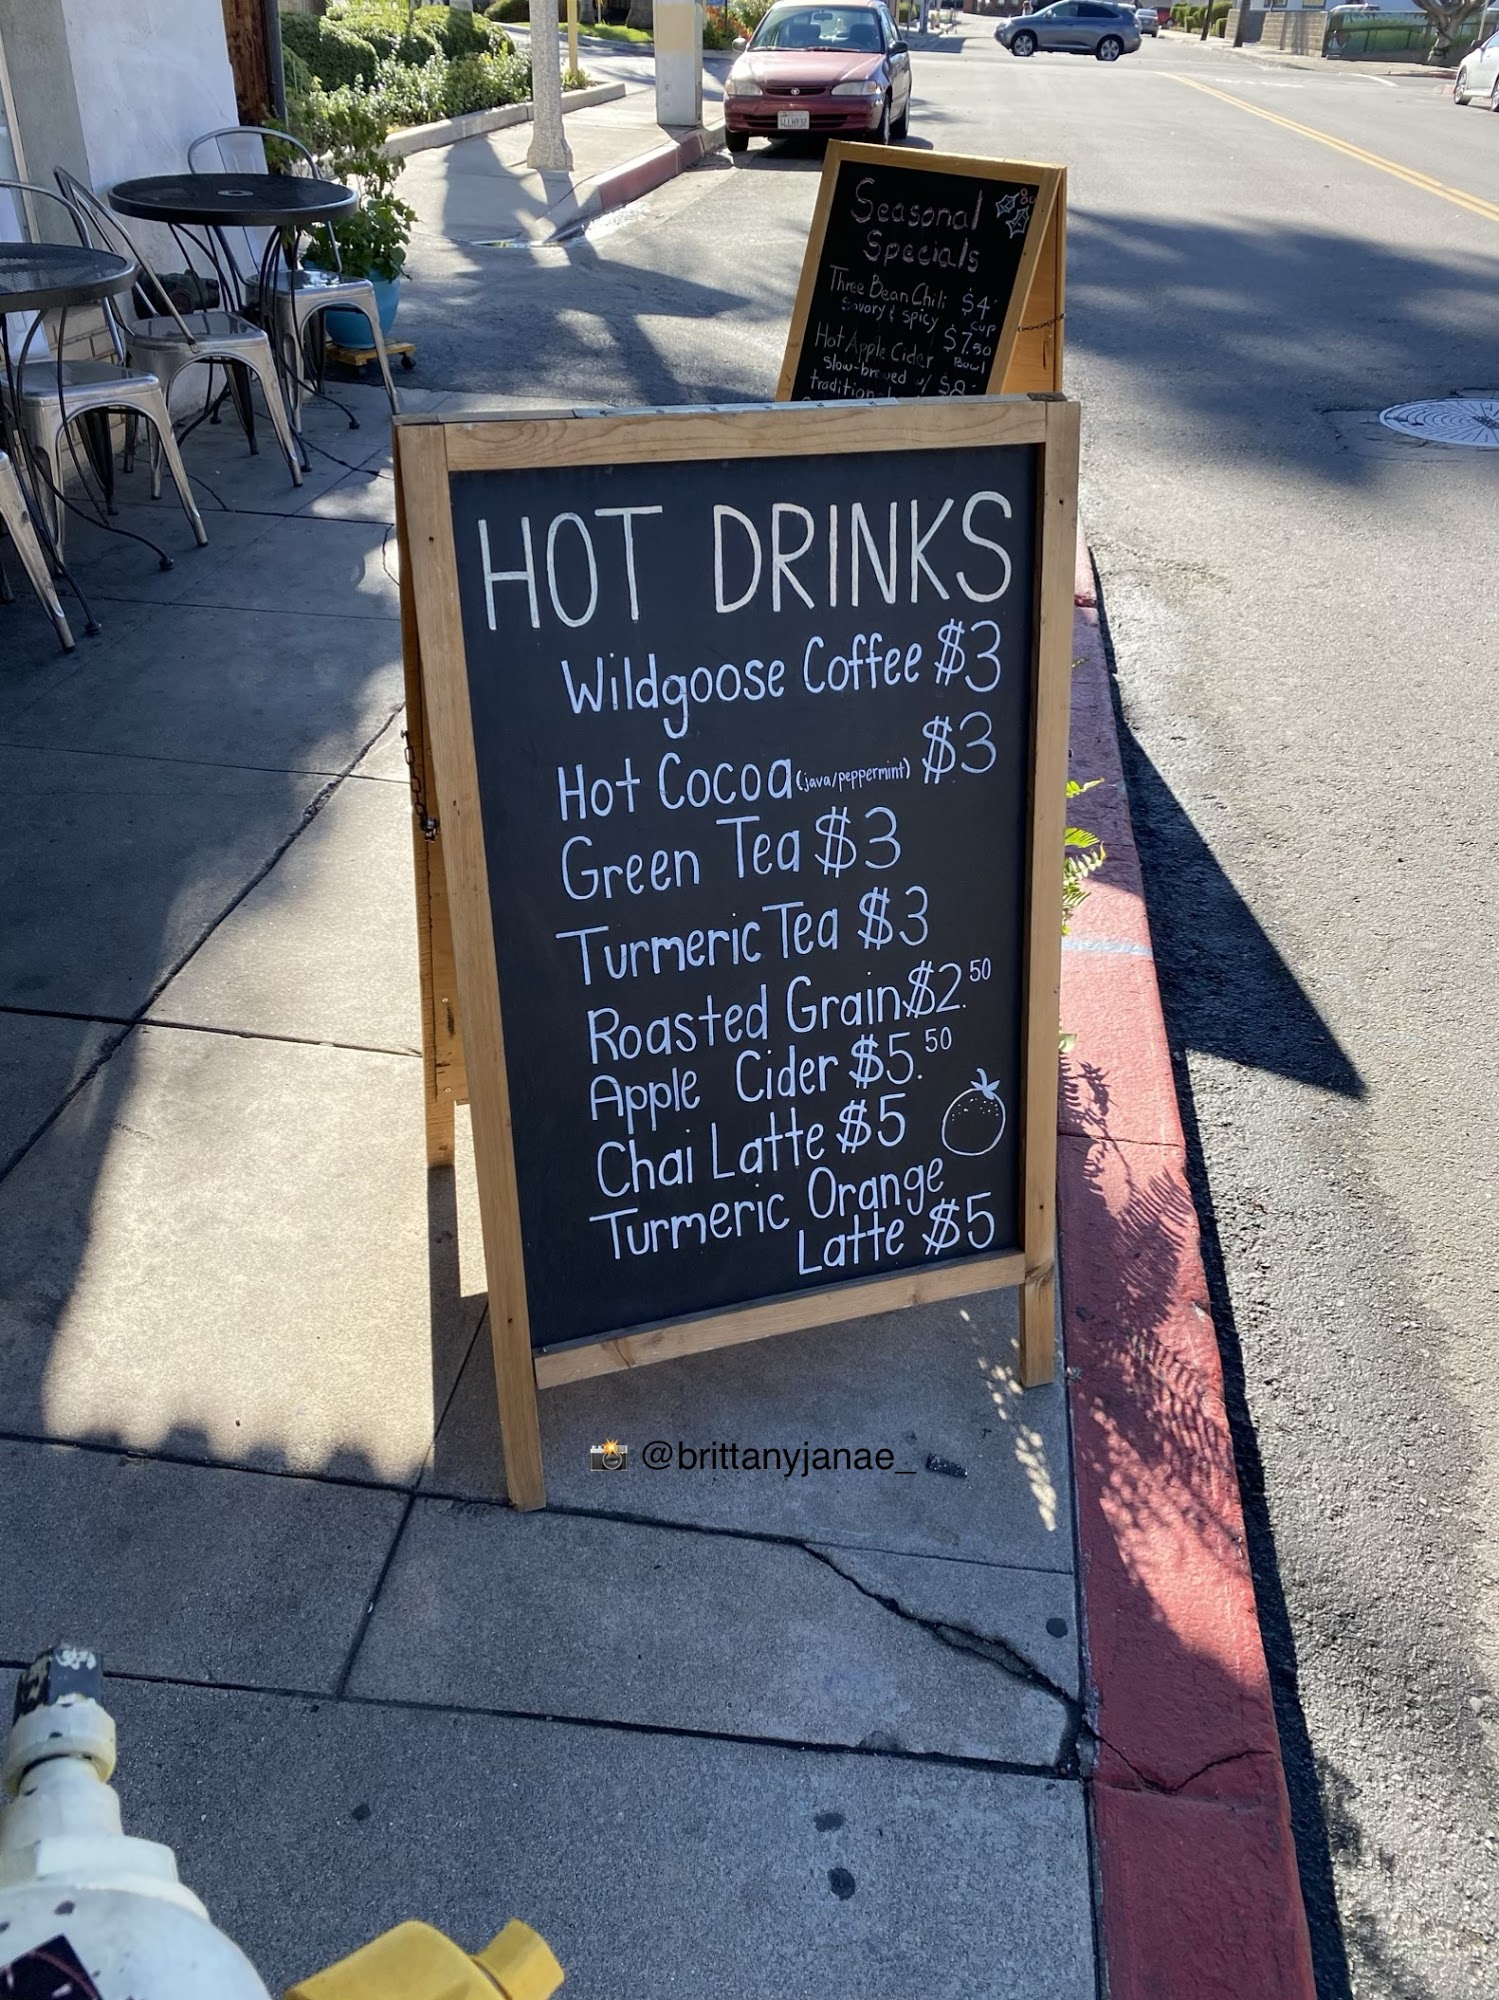 Seasonal
Specials
Three Bean Chili $4
Savory & spicy cup
$7.50
Hot Apple Cider Bowl
slow-brewed w/
HOT DRINKS
Wildgoose Coffee $3
Hot Cocoa (java/peppermint) $3
Green Tea $3
Turmeric Tea $3
Roasted Grain $2.50
Apple Cider $5.50
Chai Latte $5
Turmeric Orange
Latte $5
📸 @brittanyjanae_